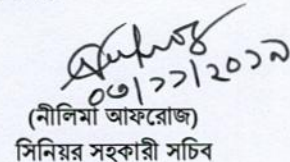 ০৩/১১/২০১৯
(নীলিমা আফরোজ)
সিনিয়র সহকারী সচিব